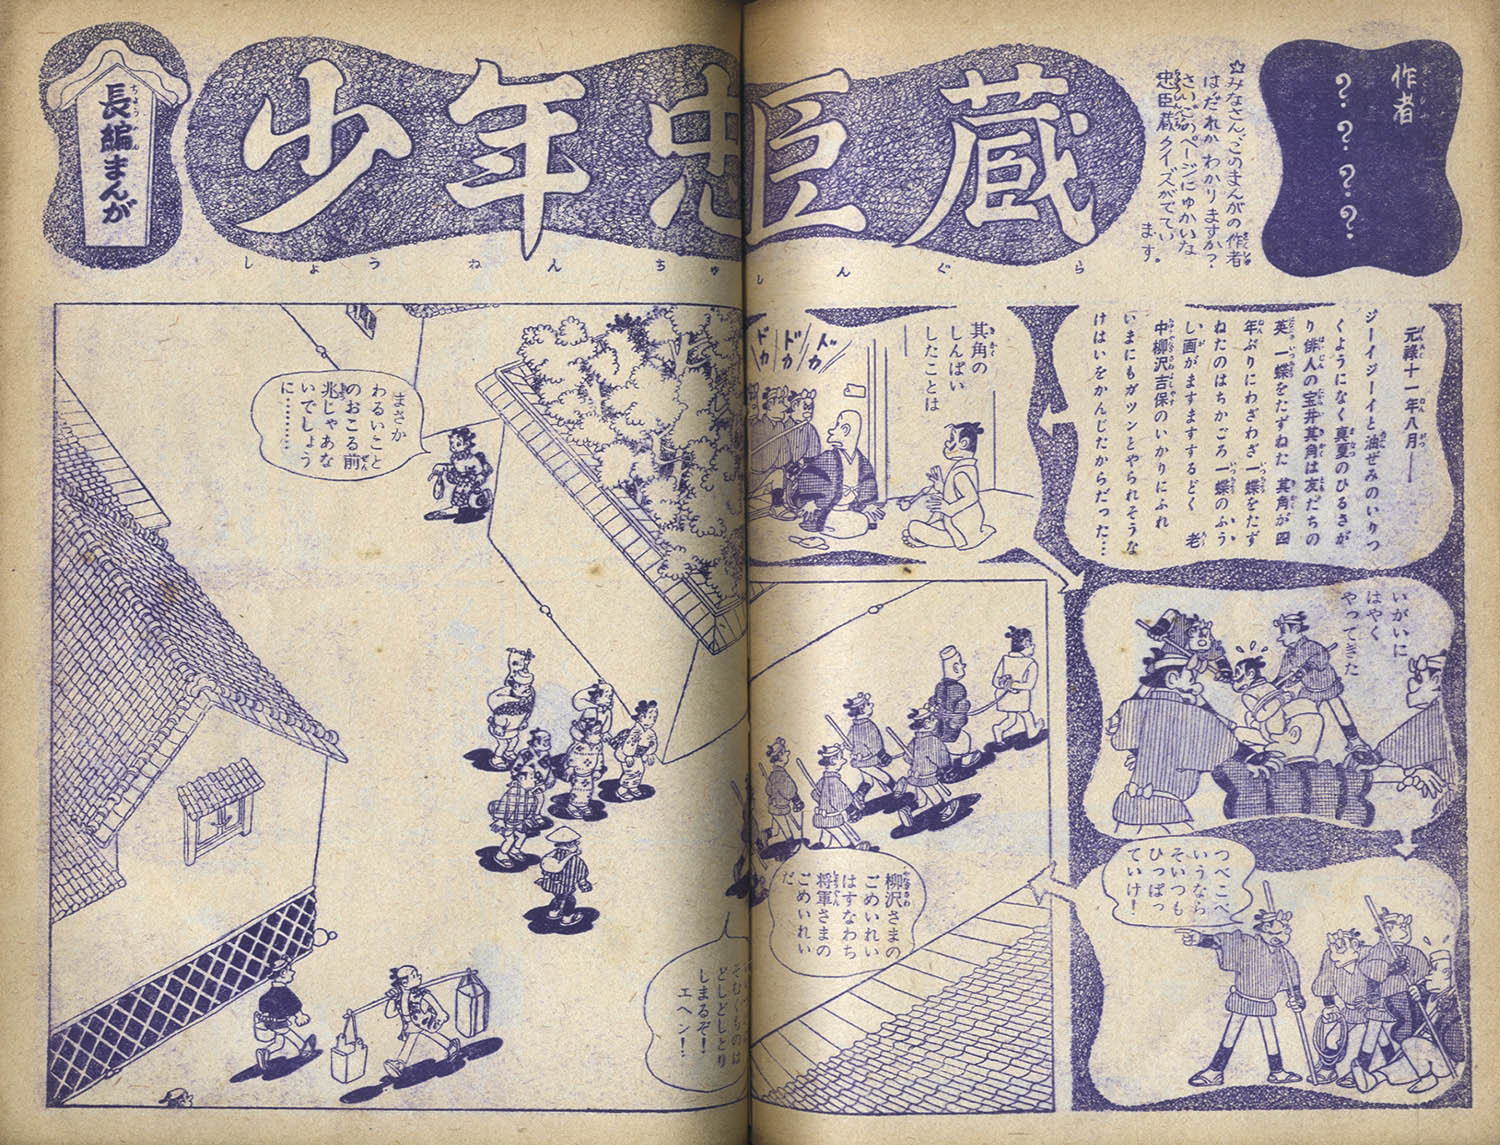 作者
？？？？？
☆みなさん、このまんがの作者
はだれか わかりますか？
さいごのページにゆかいな
忠臣蔵クイズがでてい
ます。
少年忠臣蔵
しょうねんちゅうしんぐら
長編まんが
元禄十一年八月——
ジーイジーイと油ぜみのいりつ
くようになく真夏のひるさが
り俳人の宝井其角は友だちの
英一蝶をたずねた 其角が四
年ぶりにわざわざ一蝶をたず
ねたのはちかごろ一蝶のふう
し画がますますするどく 老
中柳沢吉保のいかりにふれ
いまにもガツンとやられそうな
けはいをかんじたからだった…
其角の
しんぱい
したことは
ドカ
ドカ
ドカ
いがいに
はやく
やってきた
つべこべ
いうなら
そいつも
ひっぱっ
ていけ！
柳沢さまの
ごめいれい
はすなわち
将軍さまの
ごめいれい
だ
そむくものは
どしどしとり
しまるぞ！
エヘン！
まさか
わるいこと
のおこる前
兆じゃあな
いでしょう
に………